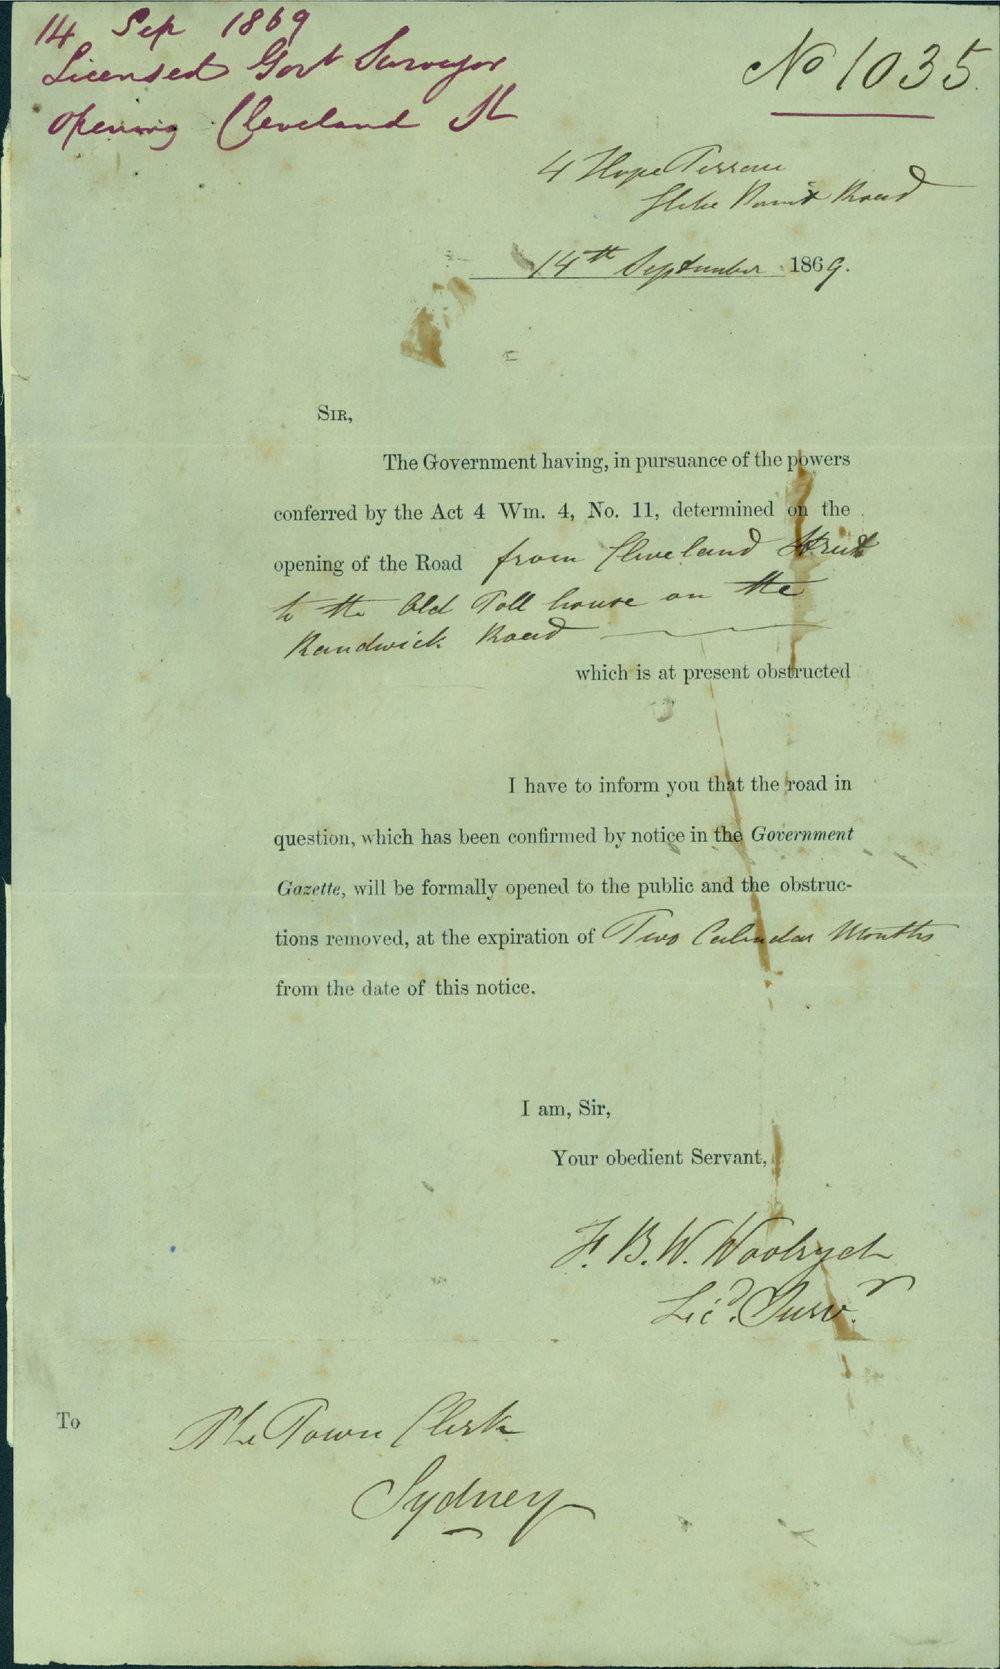 14 Sep 1869
Licensed Govt Surveyor
opening Cleveland St
No 1035
4 Hope Terrace
Glebe Point Road
14th September 1869.
SIR,
The Government having, in pursuance of the powers
conferred by the Act 4 Wm. 4, No. 11, determined on the
opening of the Road from Cleveland Street
to the Old Toll house on the
Randwick Road
which is at present obstructed
I have to inform you that the road in
question, which has been confirmed by notice in the Government
Gazette, will be formally opened to the public and the obstruc-
tions removed, at the expiration of Two Calendar Months
from the date of this notice.
I am, Sir,
Your obedient Servant,
F. B. W. Woolrych
Licd. Survr.
To The Town Clerk
Sydney